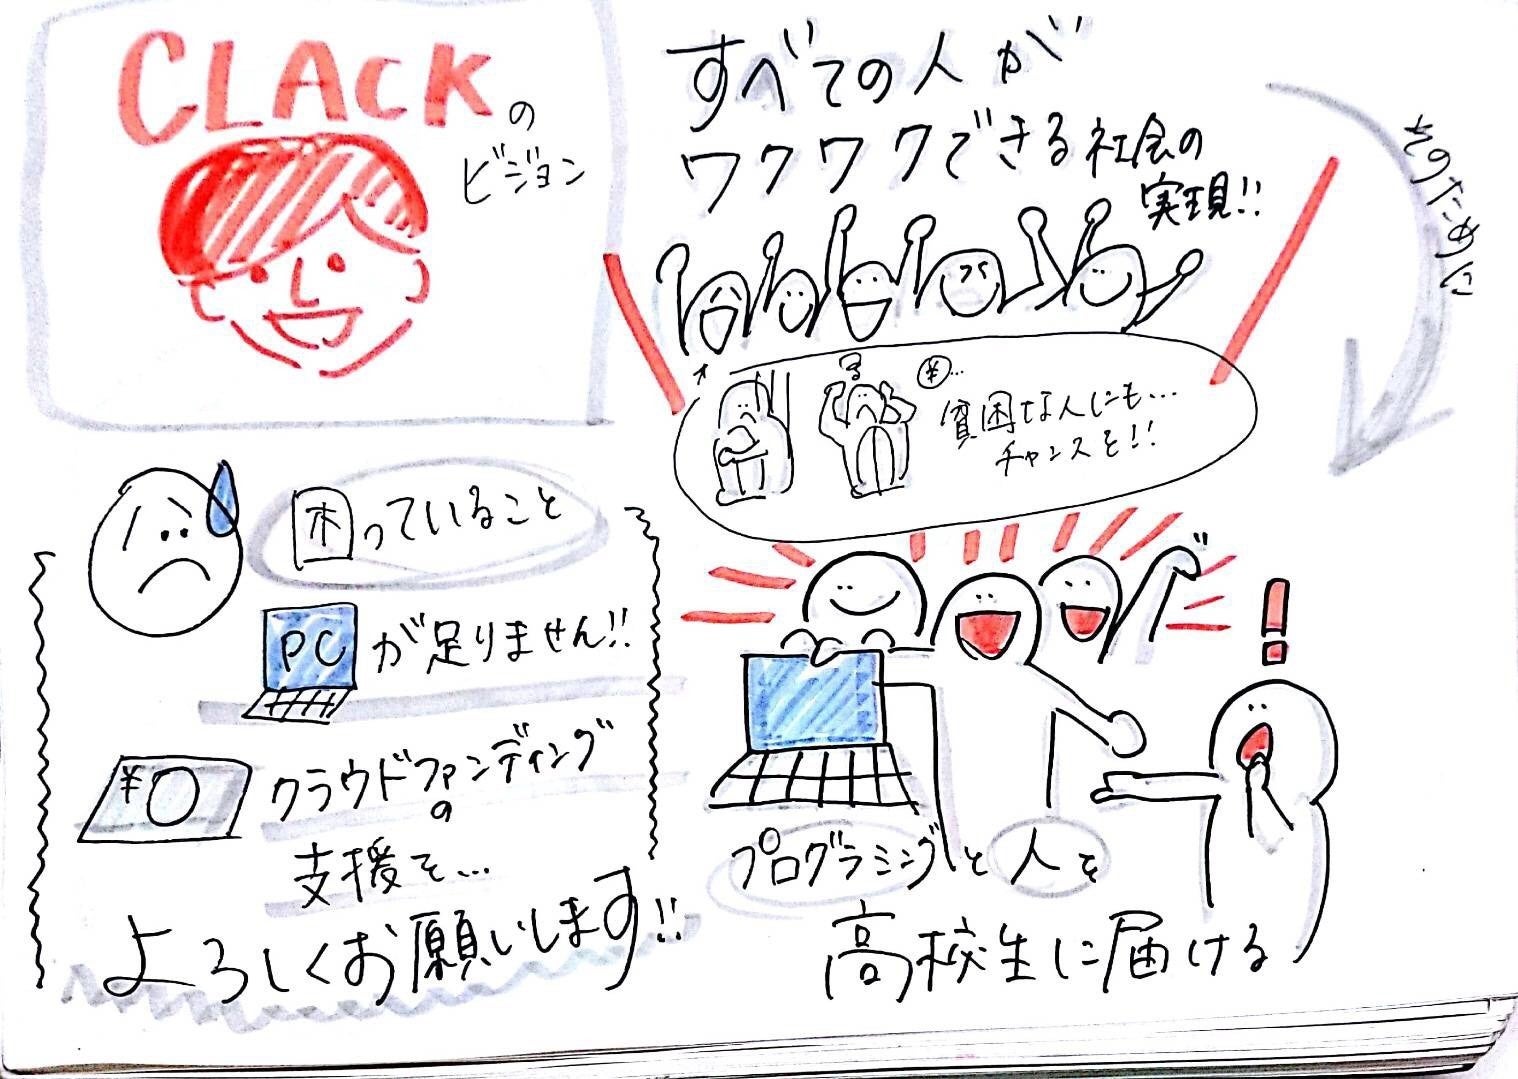 CLACKの
ビジョン
すべての人が
ワクワクできる社会の
実現!!
そのために
¥...
貧困な人にも...
チャンスを!!
困っていること
PCが足りません!!
¥
クラウドファンディング
の
支援を...
よろしくお願いします!!
!
プログラミングと人を
高校生に届ける